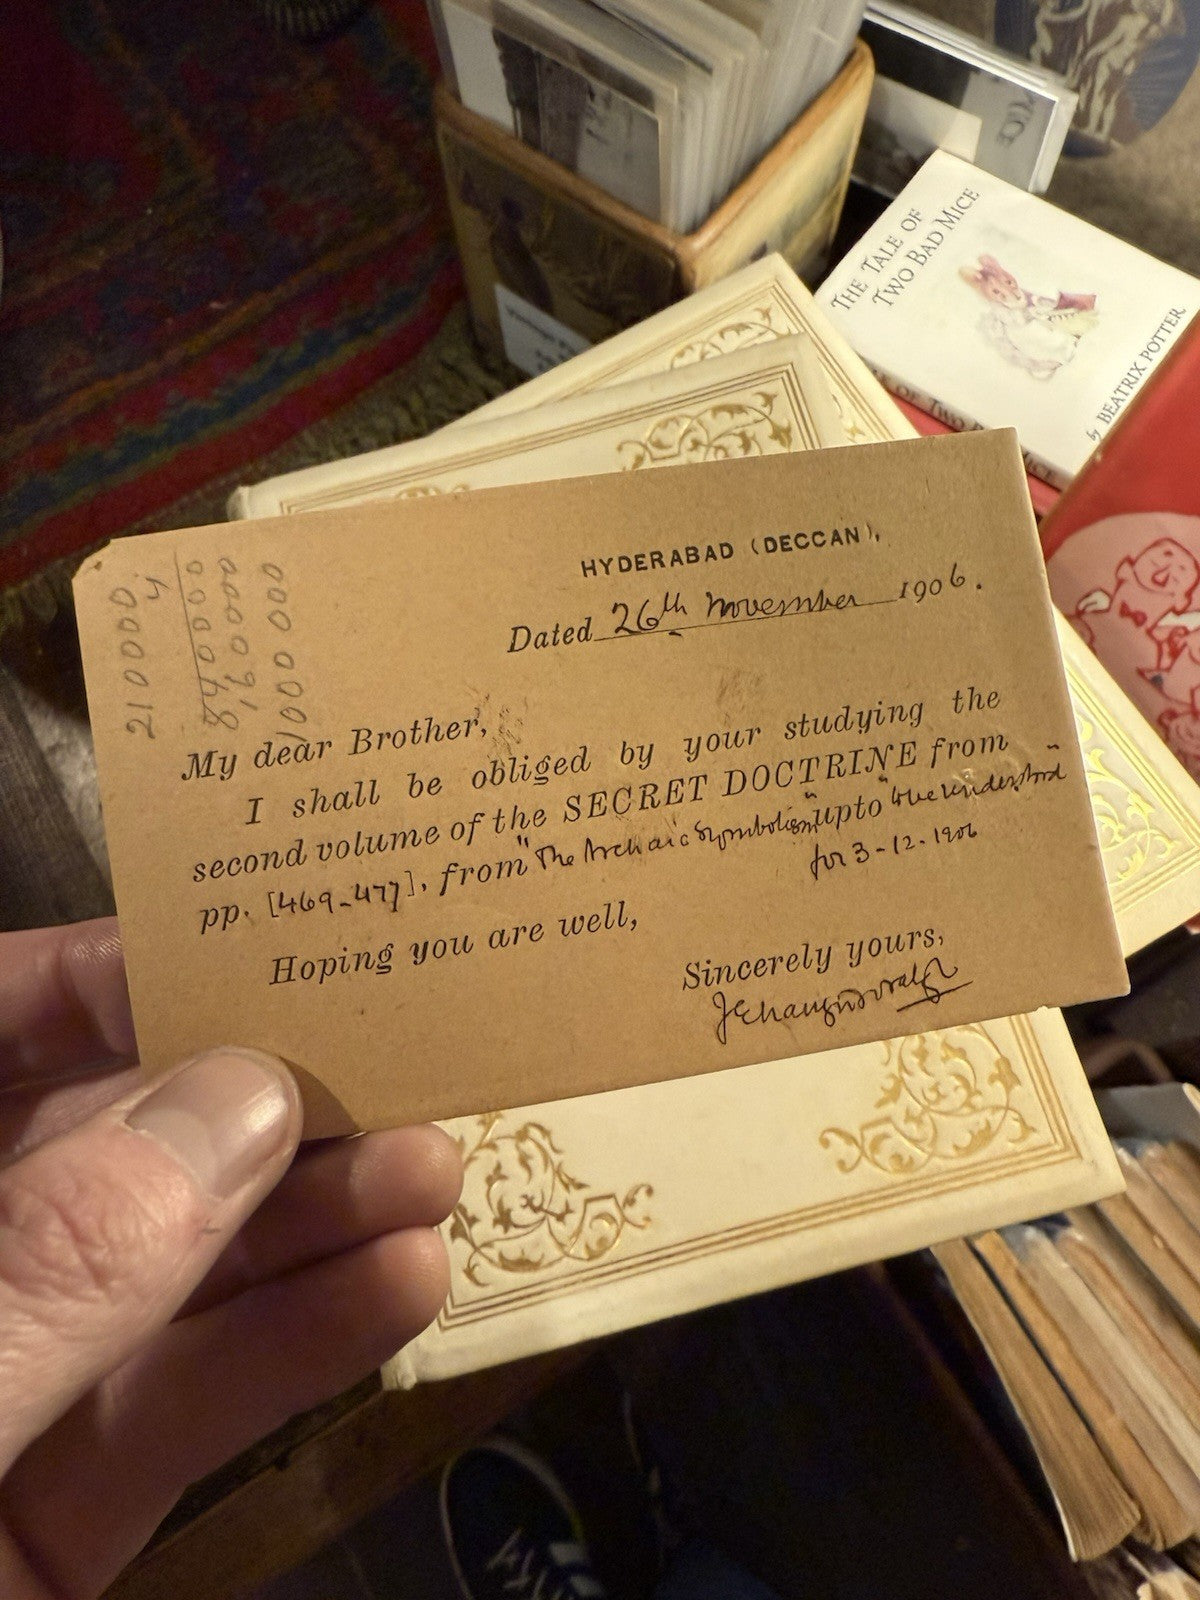 HYDERABAD (DECCAN),
Dated 26th November 1906.
My dear Brother,
I shall be obliged by your studying the
second volume of the SECRET DOCTRINE from
pp. [469-477], from "The Archaic Symbolism" upto "
for 3-12-1906
Hoping you are well,
Sincerely yours,
2100000
4
1000 000
THE TALE OF
TWO BAD MICE
by BEATRIX POTTER